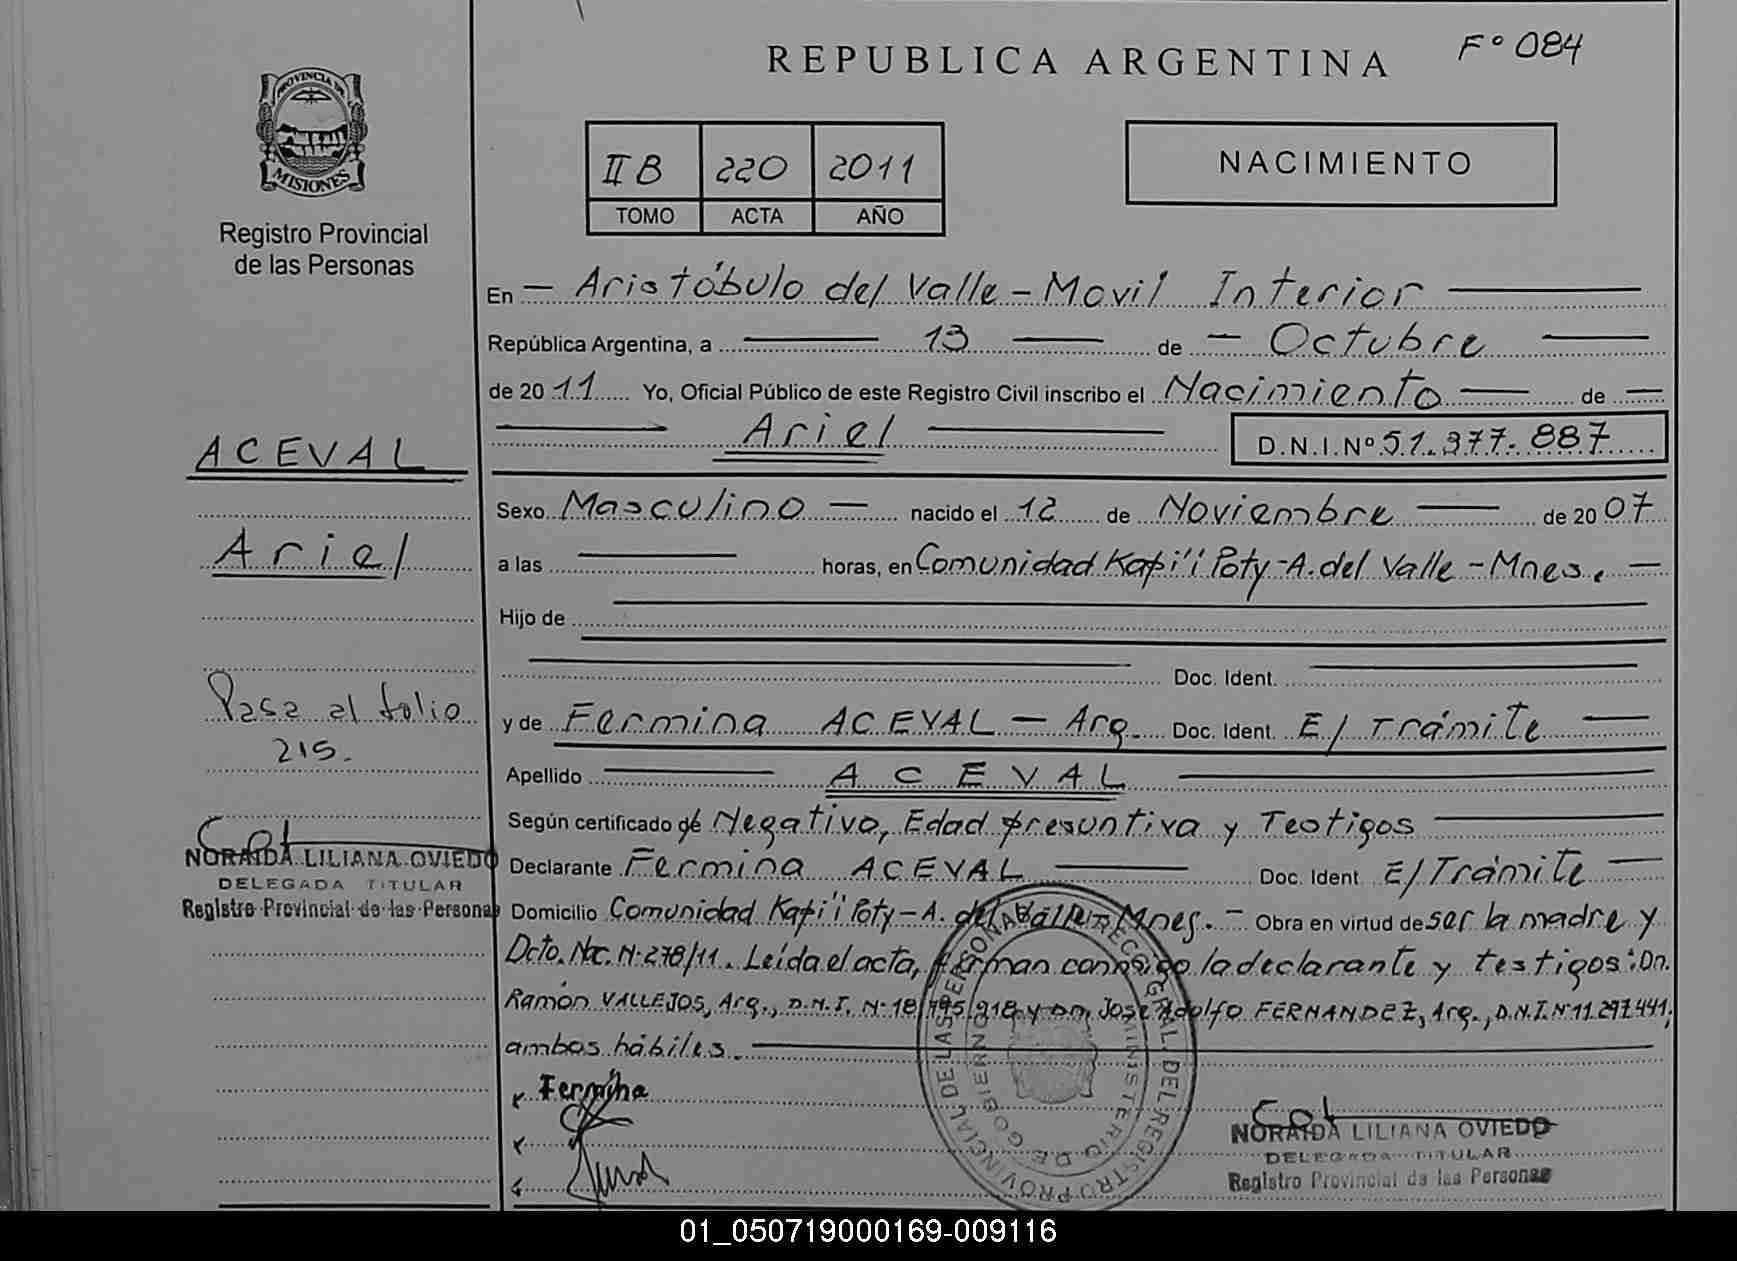 REPUBLICA ARGENTINA
Fº 084
PROVINCIA DE
MISIONES
Registro Provincial
de las Personas
II B 220 2011
TOMO ACTA AÑO
NACIMIENTO
En — Aristóbulo del Valle - Movil Interior —
República Argentina, a — 13 — de — Octubre —
de 20 11 Yo, Oficial Público de este Registro Civil inscribo el Nacimiento — de —
— Ariel — D.N.I. Nº 51.377.887
ACEVAL
Ariel
Sexo Masculino — nacido el 12 de Noviembre — de 20 07
a las — horas, en Comunidad Kapi'i Poty - A. del Valle - Mnes. —
Hijo de —
— Doc. Ident. —
y de Fermina ACEVAL — Arg. Doc. Ident. E/ Trámite —
Apellido — ACEVAL —
Según certificado de Negativo, Edad presuntiva y Testigos —
Declarante Fermina ACEVAL — Doc. Ident. E/ Trámite —
Domicilio Comunidad Kapi'i Poty - A. del Valle - Mnes. — Obra en virtud de ser la madre y
Dcto. Nac. Nº 278/11. Leída el acta, firman conmigo la declarante y testigos: Dn.
Ramón VALLEJOS, Arg., D.N.I. Nº 18.795.918 y Dn. José Adolfo FERNANDEZ, Arg., D.N.I. Nº 11.297.441,
ambos hábiles. —
Fermina
Pasa al folio
215.
NORAIDA LILIANA OVIEDO
DELEGADA TITULAR
Registro Provincial de las Personas
NORAIDA LILIANA OVIEDO
DELEGADA TITULAR
Registro Provincial de las Personas
DIREC. GRAL. DEL REGISTRO PROVINCIAL DE LAS PERSONAS
MINISTERIO DE GOBIERNO
01_050719000169-009116